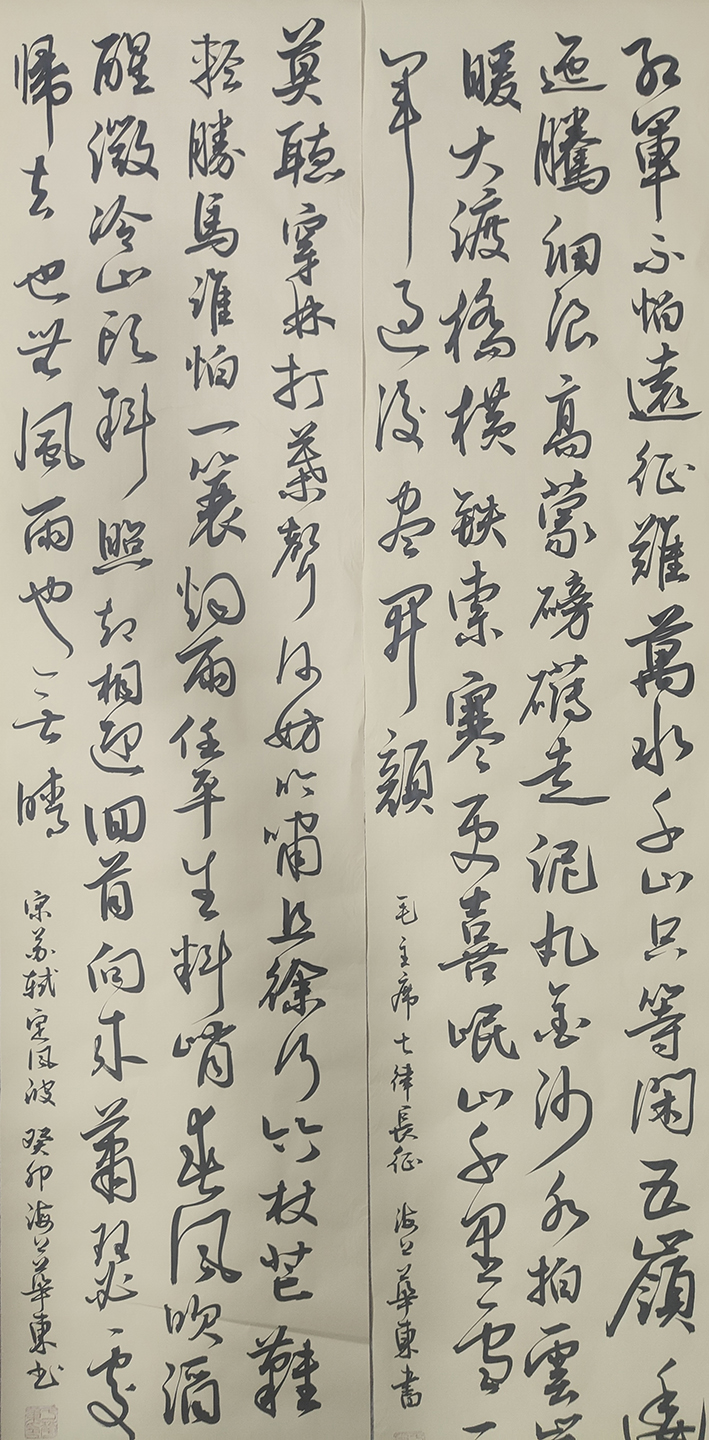 紅軍不怕遠征難萬水千山只等閑五嶺逶
迤騰細浪烏蒙磅礴走泥丸金沙水拍雲崖
暖大渡橋橫鉄索寒更喜岷山千里雪三
軍過後盡開顏
毛主席七律長征 海上華東書
莫聽穿林打葉聲何妨吟嘯且徐行竹杖芒鞋
輕勝馬誰怕一蓑烟雨任平生料峭春風吹酒
醒微冷山頭斜照却相迎回首向來蕭瑟處
歸去也無風雨也無晴
宋苏軾定風波 癸卯海上華東书